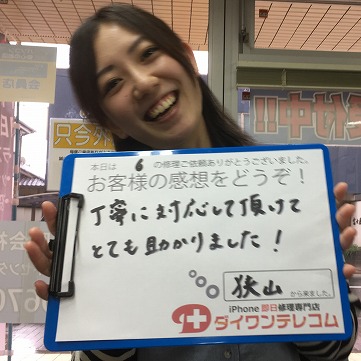 只今
会員
付中!!
本日は 6 の修理ご依頼ありがとうございました。
お客様の感想をどうぞ!
丁寧に対応して頂けて
とても助かりました!
狭山 から来ました。
iPhone 即日修理専門店
ダイワンテレコム
会社
670